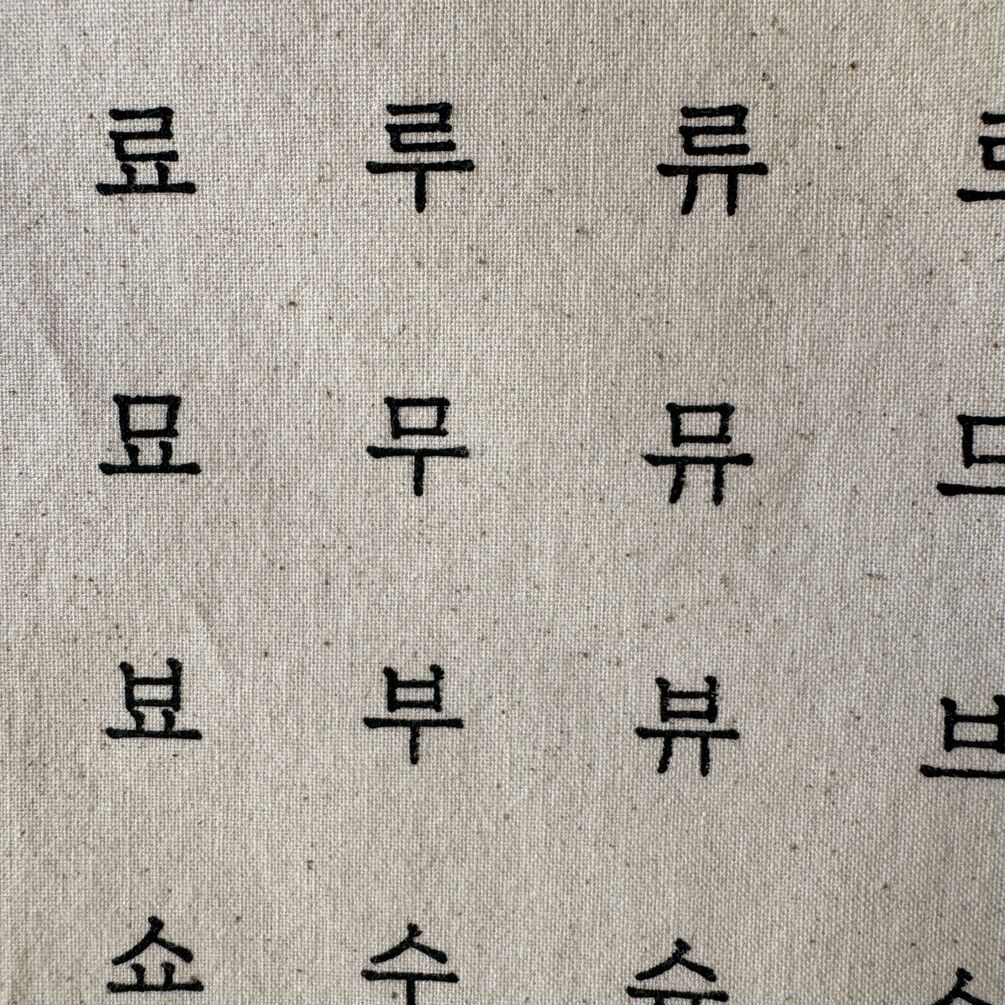 료 루 류 르
묘 무 뮤 므
뵤 부 뷰 브
쇼 수 슈